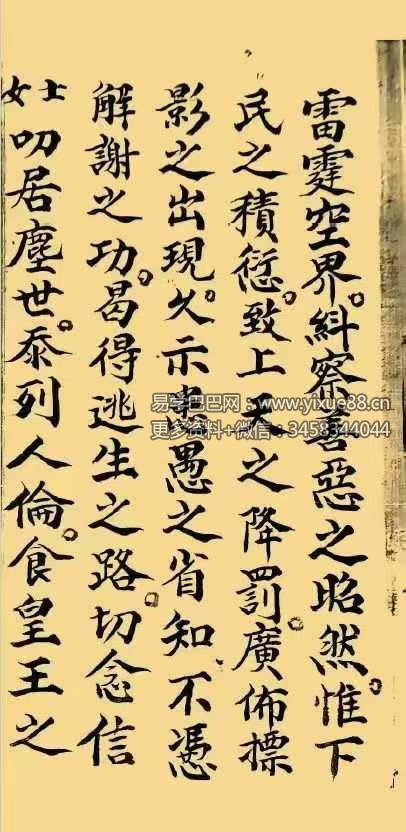 雷霆空界。糾察善惡之昭然。惟下
民之積愆。致上天之降罰。廣佈標
影之出現。久示愚之省知。不憑
解謝之功。曷得逃生之路。切念信
士女叨居塵世。忝列人倫。食皇王之
易学巴巴网：www.yixue88.cn
更多资料+微信：3458344044